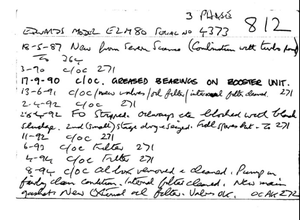 3 PHASE
812
EDWARDS MODEL E2M80 SERIAL NO 4373
18-5-87 New from Seven Science (Combination with turbo pump)
To 264
3-90 C/OC 271
17-9-90 C/OC. GREASED BEARINGS ON BOOSTER UNIT.
13-6-91 C/OC/new valves/oil filter/internal filter cleaned. 271
2-4-92 C/OC 271
28-4-92 FO Stripped. oilways etc blocked with black
sludge. 2nd (small) stage drag seized. To 271
11-92 C/OC 271
6-93 C/OC Filter 271
4-94 C/OC Filter 271
8-94 C/OC Oil box removed & cleaned. Pump in
fairly clean condition. Internal filter cleaned. New main
gaskets New External oil filter. Valves OK.